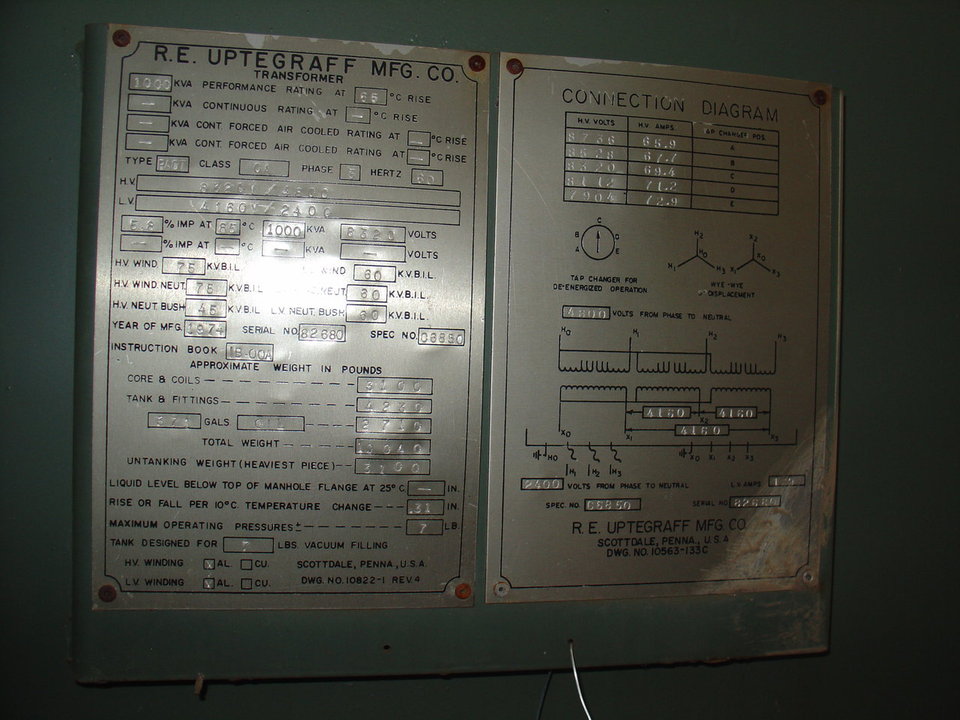 R.E. UPTEGRAFF MFG. CO.
TRANSFORMER
1000 KVA PERFORMANCE RATING AT 65 °C RISE
— KVA CONTINUOUS RATING AT — °C RISE
— KVA CONT. FORCED AIR COOLED RATING AT — °C RISE
— KVA CONT. FORCED AIR COOLED RATING AT — °C RISE
TYPE CLASS OA PHASE HERTZ 60
H.V.
L.V. 4160Y/2400
5.8 % IMP AT 85 °C 1000 KVA 8320 VOLTS
— % IMP AT — °C — KVA — VOLTS
H.V. WIND 75 K.V.B.I.L. WIND 60 K.V.B.I.L.
H.V. WIND. NEUT. 75 K.V.B.I.L. NEUT. 60 K.V.B.I.L.
H.V. NEUT BUSH 45 K.V.B.I.L. L.V. NEUT. BUSH 60 K.V.B.I.L.
YEAR OF MFG. 1974 SERIAL NO. 82680 SPEC NO.
INSTRUCTION BOOK IB-00A
APPROXIMATE WEIGHT IN POUNDS
CORE & COILS 3100
TANK & FITTINGS
GALS OIL
TOTAL WEIGHT
UNTANKING WEIGHT (HEAVIEST PIECE) 3100
LIQUID LEVEL BELOW TOP OF MANHOLE FLANGE AT 25°C — IN.
RISE OR FALL PER 10°C TEMPERATURE CHANGE .31 IN.
MAXIMUM OPERATING PRESSURES ± 7 LB.
TANK DESIGNED FOR 7 LBS. VACUUM FILLING
H.V. WINDING X AL. CU. SCOTTDALE, PENNA., U.S.A.
L.V. WINDING X AL. CU. DWG. NO. 10822-1 REV. 4
CONNECTION DIAGRAM
H.V. VOLTS H.V. AMPS. TAP CHANGER POS.
8736 65.9 A
8528 67.7 B
8320 69.4 C
8112 71.2 D
7904 72.9 E
C
B D
A E
H2 X2
H0 X0
H1 H3 X1 X3
TAP CHANGER FOR
DE-ENERGIZED OPERATION
WYE-WYE
DISPLACEMENT
4800 VOLTS FROM PHASE TO NEUTRAL
H0 H1 H2 H3
4160 4160
4160
X0 X1 X2 X3
H0 H1 H2 H3 X0 X1 X2 X3
2400 VOLTS FROM PHASE TO NEUTRAL L.V. AMPS
SPEC. NO. SERIAL NO. 82680
R.E. UPTEGRAFF MFG. CO.
SCOTTDALE, PENNA., U.S.A.
DWG. NO. 10563-133C